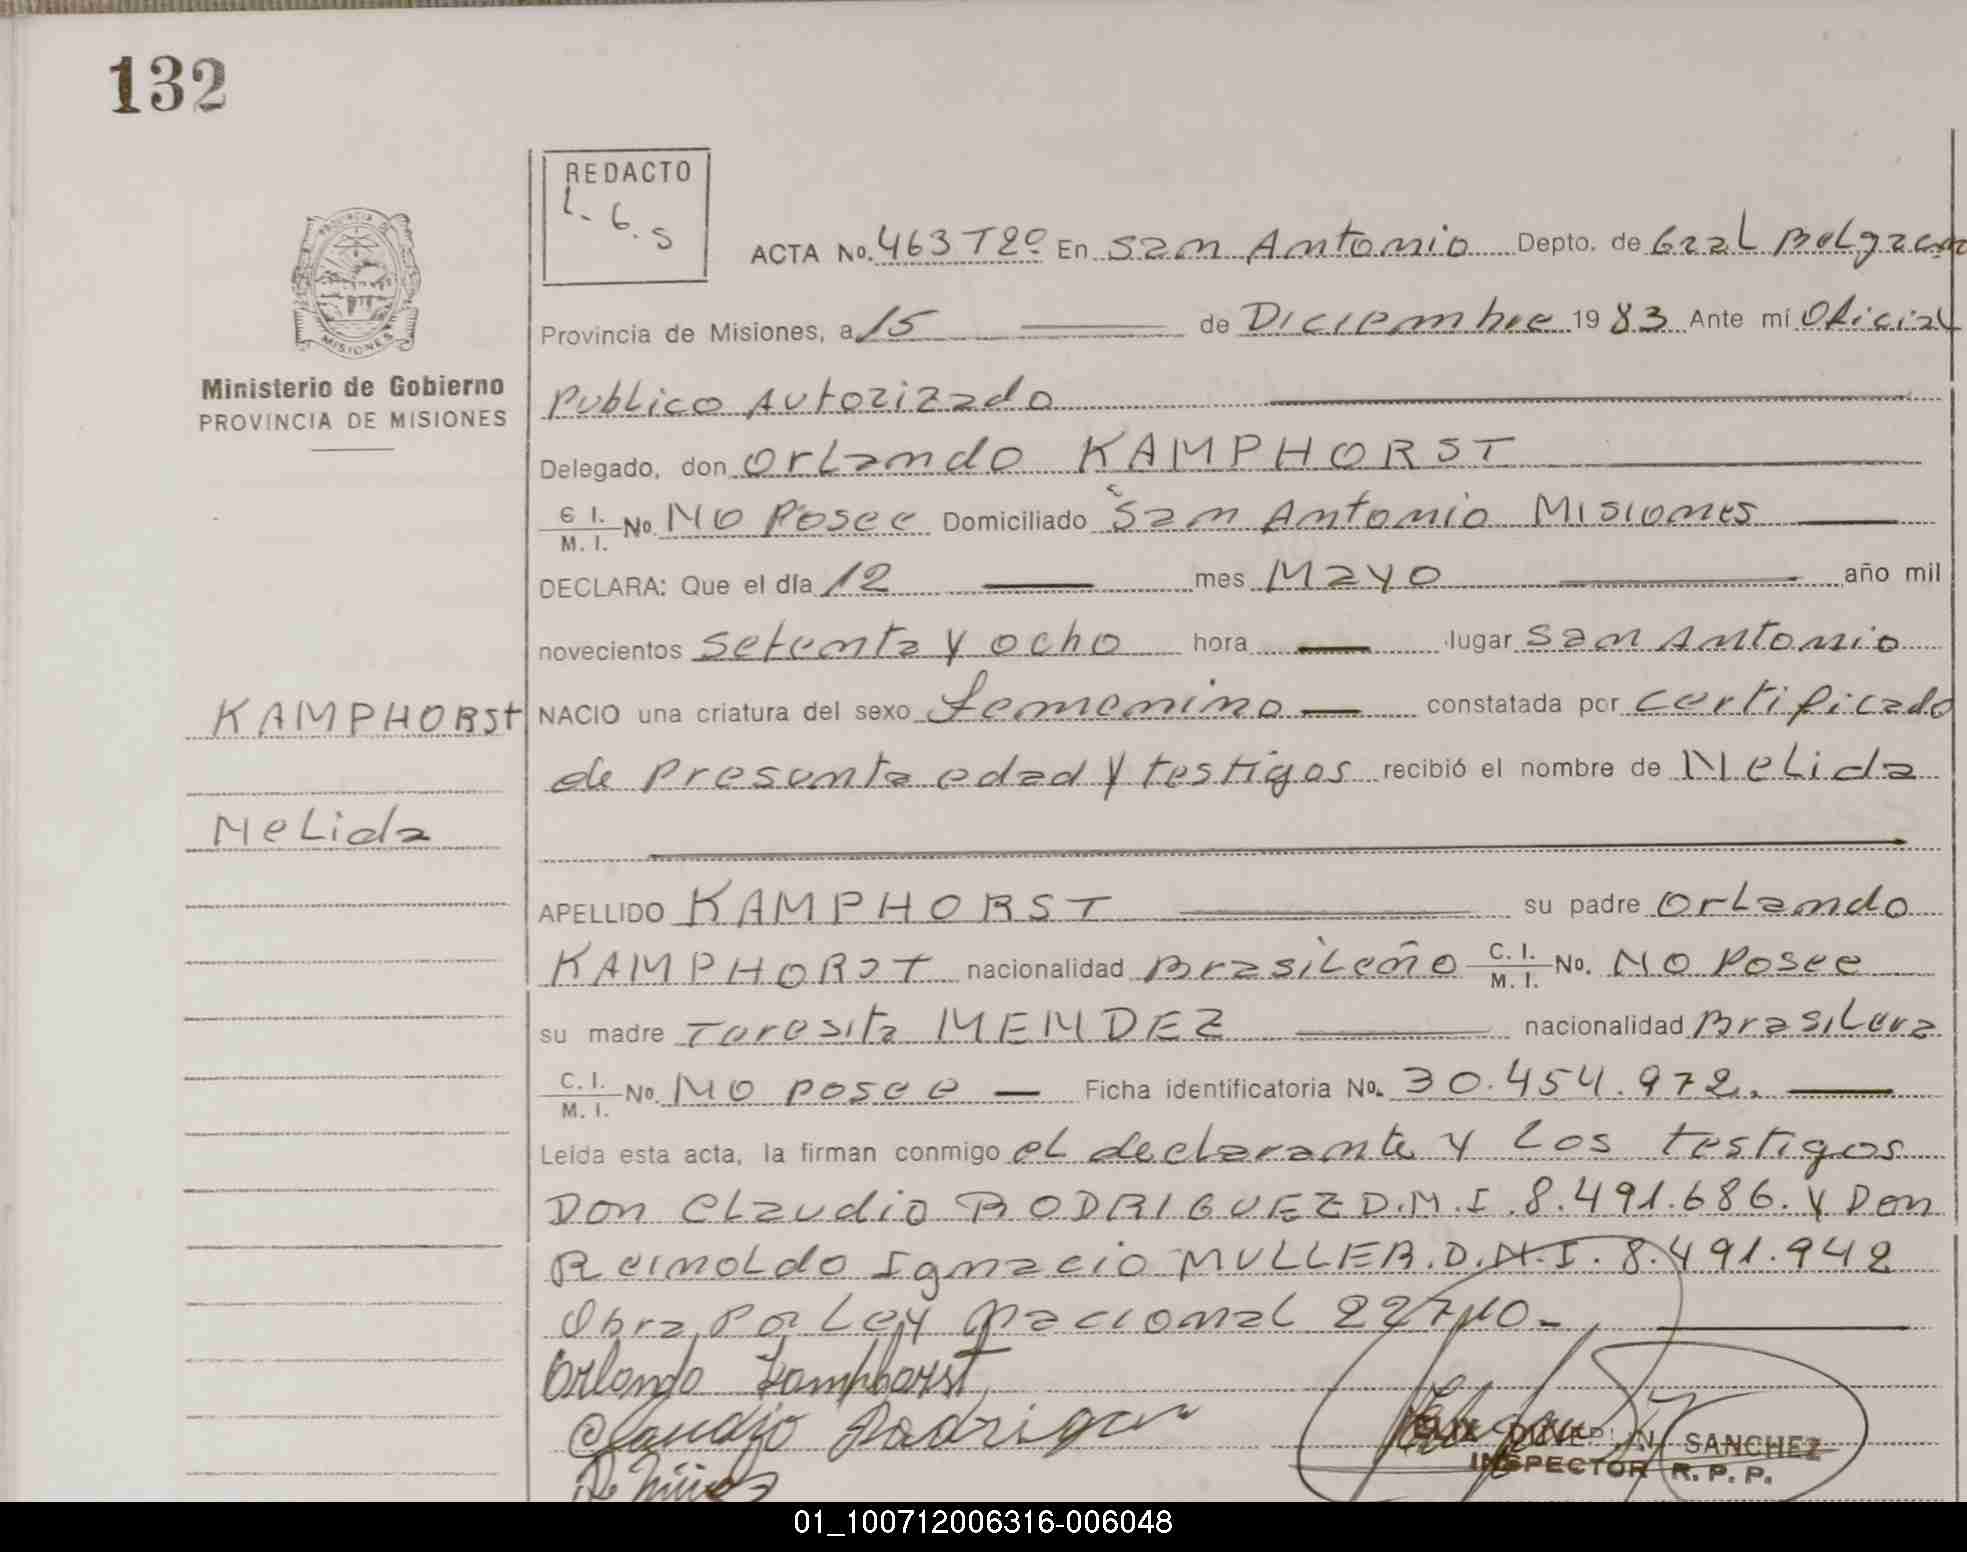 132
REDACTO
L. G. S
PROVINCIA DE
MISIONES
Ministerio de Gobierno
PROVINCIA DE MISIONES
ACTA No. 463 T2º En San Antonio Depto. de Gral Belgrano
Provincia de Misiones, a 15 de Diciembre 1983 Ante mí Oficial
Publico Autorizado
Delegado, don Orlando KAMPHORST
C I. M. I. No. No Posee Domiciliado San Antonio Misiones
DECLARA: Que el día 12 mes Mayo año mil
novecientos setenta y ocho hora lugar San Antonio
KAMPHORST NACIO una criatura del sexo femenino constatada por certificado
de Presunta edad y testigos recibió el nombre de Nelida
Nelida
APELLIDO KAMPHORST su padre Orlando
KAMPHORST nacionalidad Brasileño C. I. M. I. No. No Posee
su madre Teresita MENDEZ nacionalidad Brasilera
C. I. M. I. No. No posee Ficha identificatoria No. 30.454.972.
Leída esta acta, la firman conmigo el declarante y los testigos
Don Claudio RODRIGUEZ D.M.I. 8.491.686. y Don
Reinoldo Ignacio MULLER. D.N.I. 8.491.942
Obra Por Ley Nacional 22710.-
Orlando Kamphorst
Claudio Rodrigue
SANCHEZ
INSPECTOR R. P. P.
01_100712006316-006048